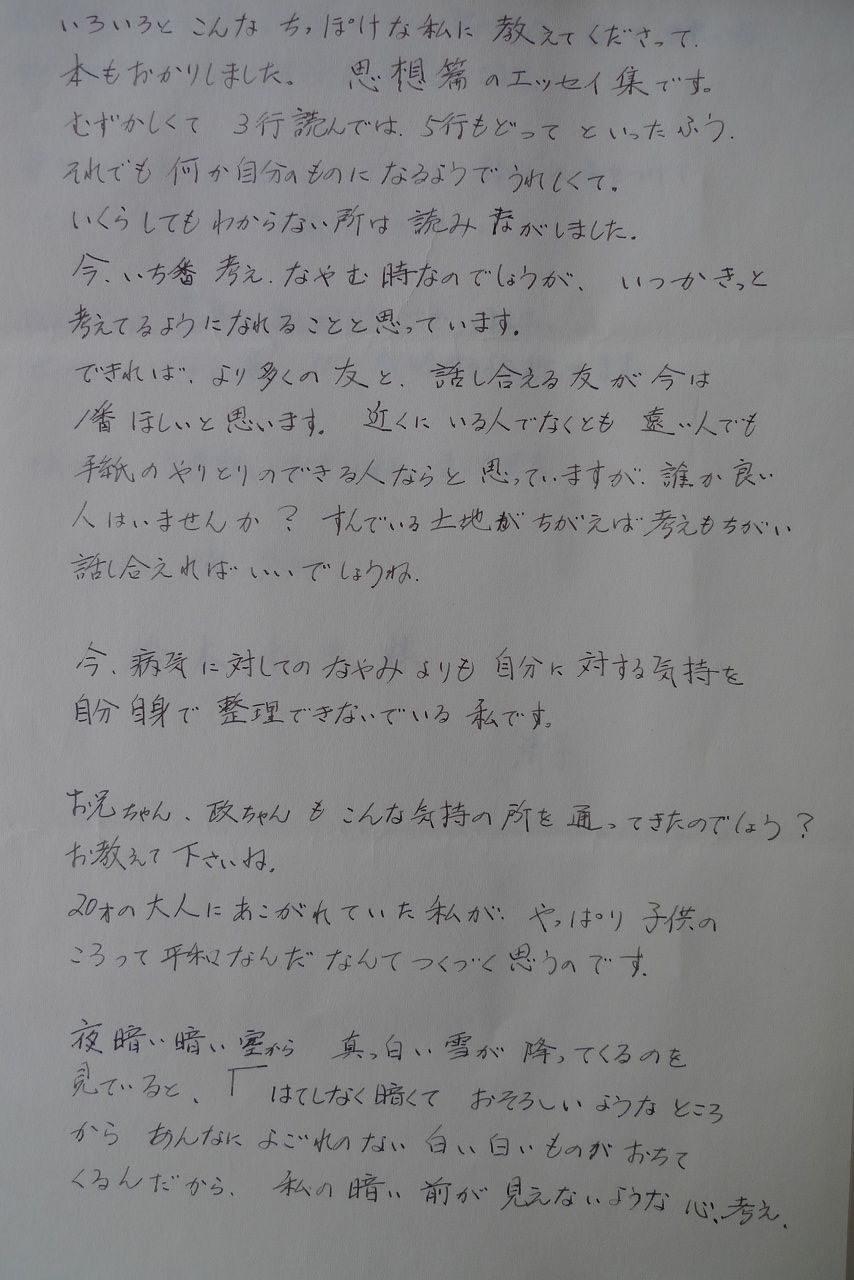 いろいろと こんな ちっぽけな私に 教えてくださって.
本もおかりしました。 思想篇のエッセイ集です。
むずかしくて 3行読んでは. 5行もどって といったふう.
それでも 何か自分のものに なるようで うれしくて。
いくらしても わからない所は 読み ながしました.
今、いち番 考え. なやむ 時なのでしょうが、 いつかきっと
考えてるようになれることと思っています.
できれば、より多くの 友と、 話し合える友が今は
1番 ほしいと思います. 近くに いる人でなくとも 遠い人でも
手紙の やりとりのできる人ならと 思っていますが. 誰か良い
人はいませんか? すんでいる土地がちがえば考えもちがい
話し合えれば いいでしょうね.
今、病気に対しての なやみよりも 自分に 対する気持を
自分自身で 整理できないでいる 私です。
お兄ちゃん、政ちゃんも こんな気持の所を 通ってきたのでしょう?
お教えて下さいね.
20才の大人にあこがれていた私が. やっぱり 子供の
ころって平和なんだ なんて つくづく思うのです.
夜暗い暗い空から 真っ白い雪が 降ってくるのを
見ていると、「はてしなく暗くて おそろしいようなところ
から あんなに よごれのない 白い白いものが おちて
くるんだから. 私の暗い 前が見えないような 心、考え.